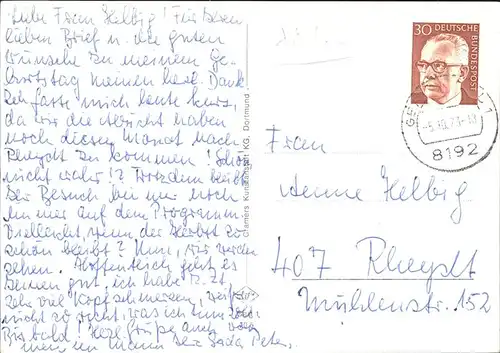 Liebe Frau Helbig! Für Ihren
lieben Brief u. die guten
Wünsche zu meinem Ge-
burtstag meinen herzl. Dank
Ich fasse mich heute kurz,
da wir die Absicht haben
noch diesen Monat nach
Rheydt zu kommen! Schön
nicht wahr!? Trotzdem bleibt
Ihr Besuch bei mir noch
immer auf dem Programm
Vielleicht, wenn der Herbst so
schön bleibt? Nun, wir werden
sehen. Hoffentlich geht es
Ihnen gut, ich habe z. Zt.
sehr viel Kopfschmerzen, weiß
nicht so recht, was ich tun soll.
Bis bald! Herzl. Grüße auch von
meinem Mann Ihre Peters
Cramers Kunstanstalt KG, Dortmund
30 DEUTSCHE
BUNDESPOST
8192
Frau
Helbig
407 Rheydt
Mühlenstr. 152